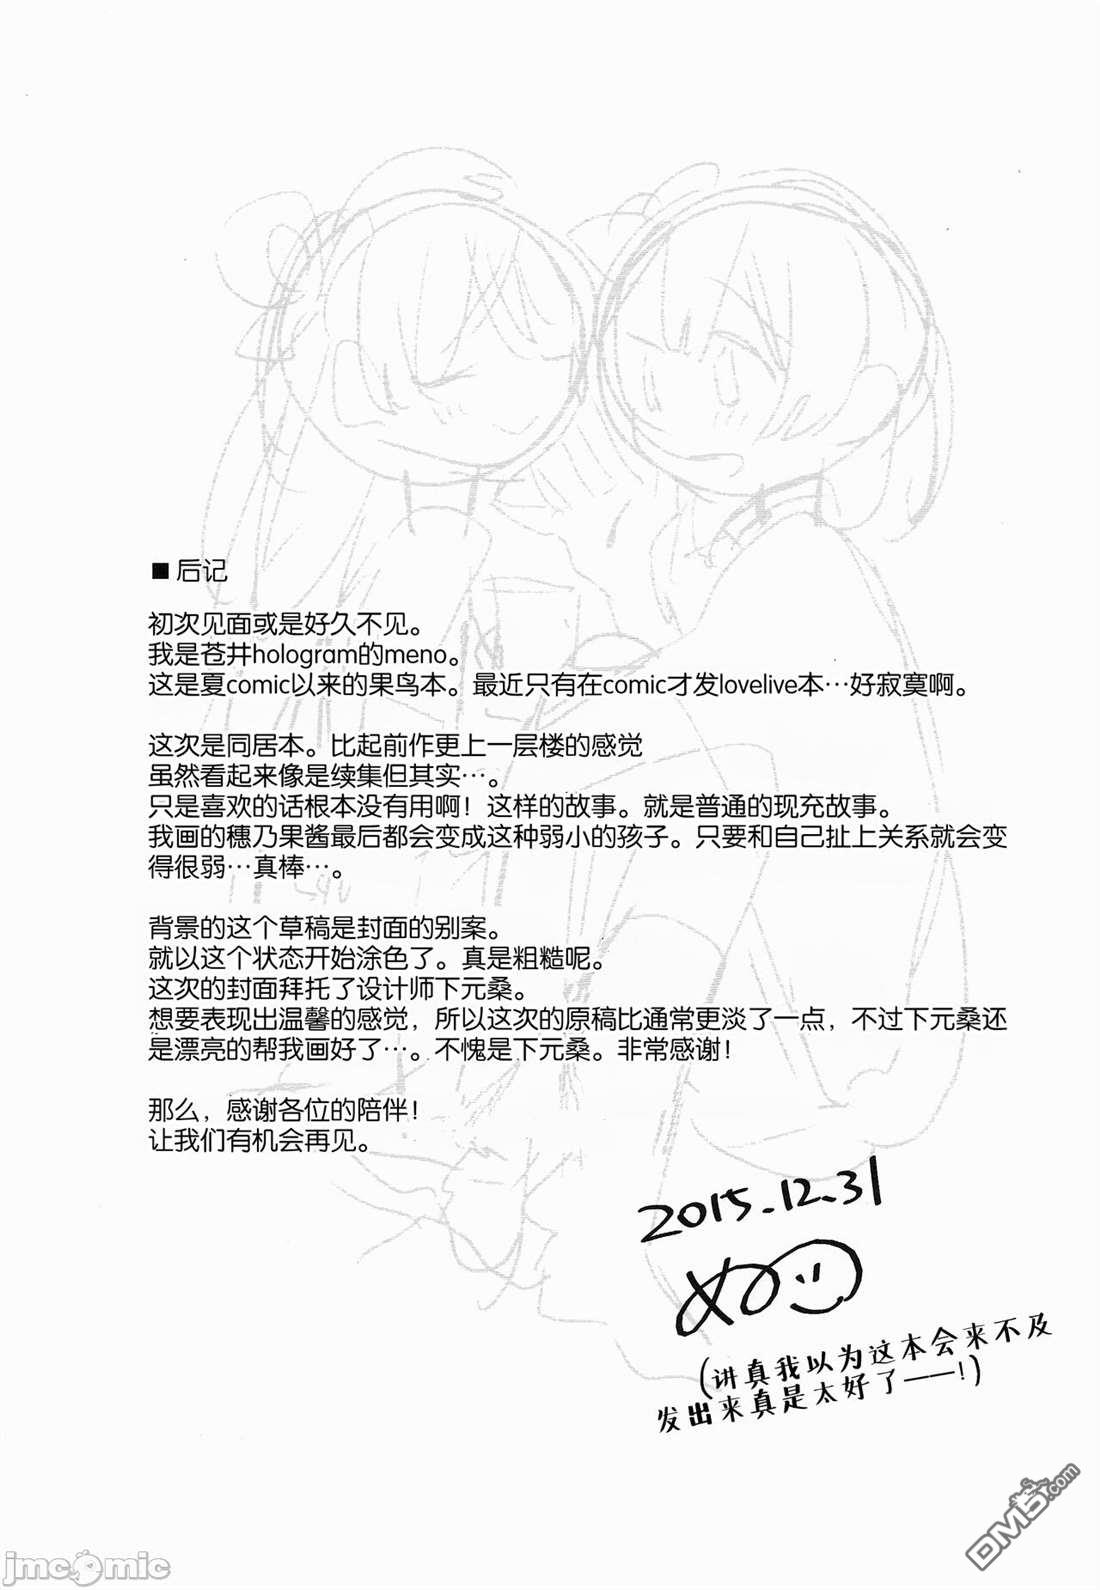 ■后记
初次见面或是好久不见。
我是苍井hologram的meno。
这是夏comic以来的果鸟本。最近只有在comic才发lovelive本…好寂寞啊。
这次是同居本。比起前作更上一层楼的感觉
虽然看起来像是续集但其实…。
只是喜欢的话根本没有用啊！这样的故事。就是普通的现充故事。
我画的穗乃果酱最后都会变成这种弱小的孩子。只要和自己扯上关系就会变
得很弱…真棒…。
背景的这个草稿是封面的别案。
就以这个状态开始涂色了。真是粗糙呢。
这次的封面拜托了设计师下元桑。
想要表现出温馨的感觉，所以这次的原稿比通常更淡了一点，不过下元桑还
是漂亮的帮我画好了…。不愧是下元桑。非常感谢！
那么，感谢各位的陪伴！
让我们有机会再见。
2015.12.31
(讲真我以为这本会来不及
发出来真是太好了——!)
DM5.com
jmcomic